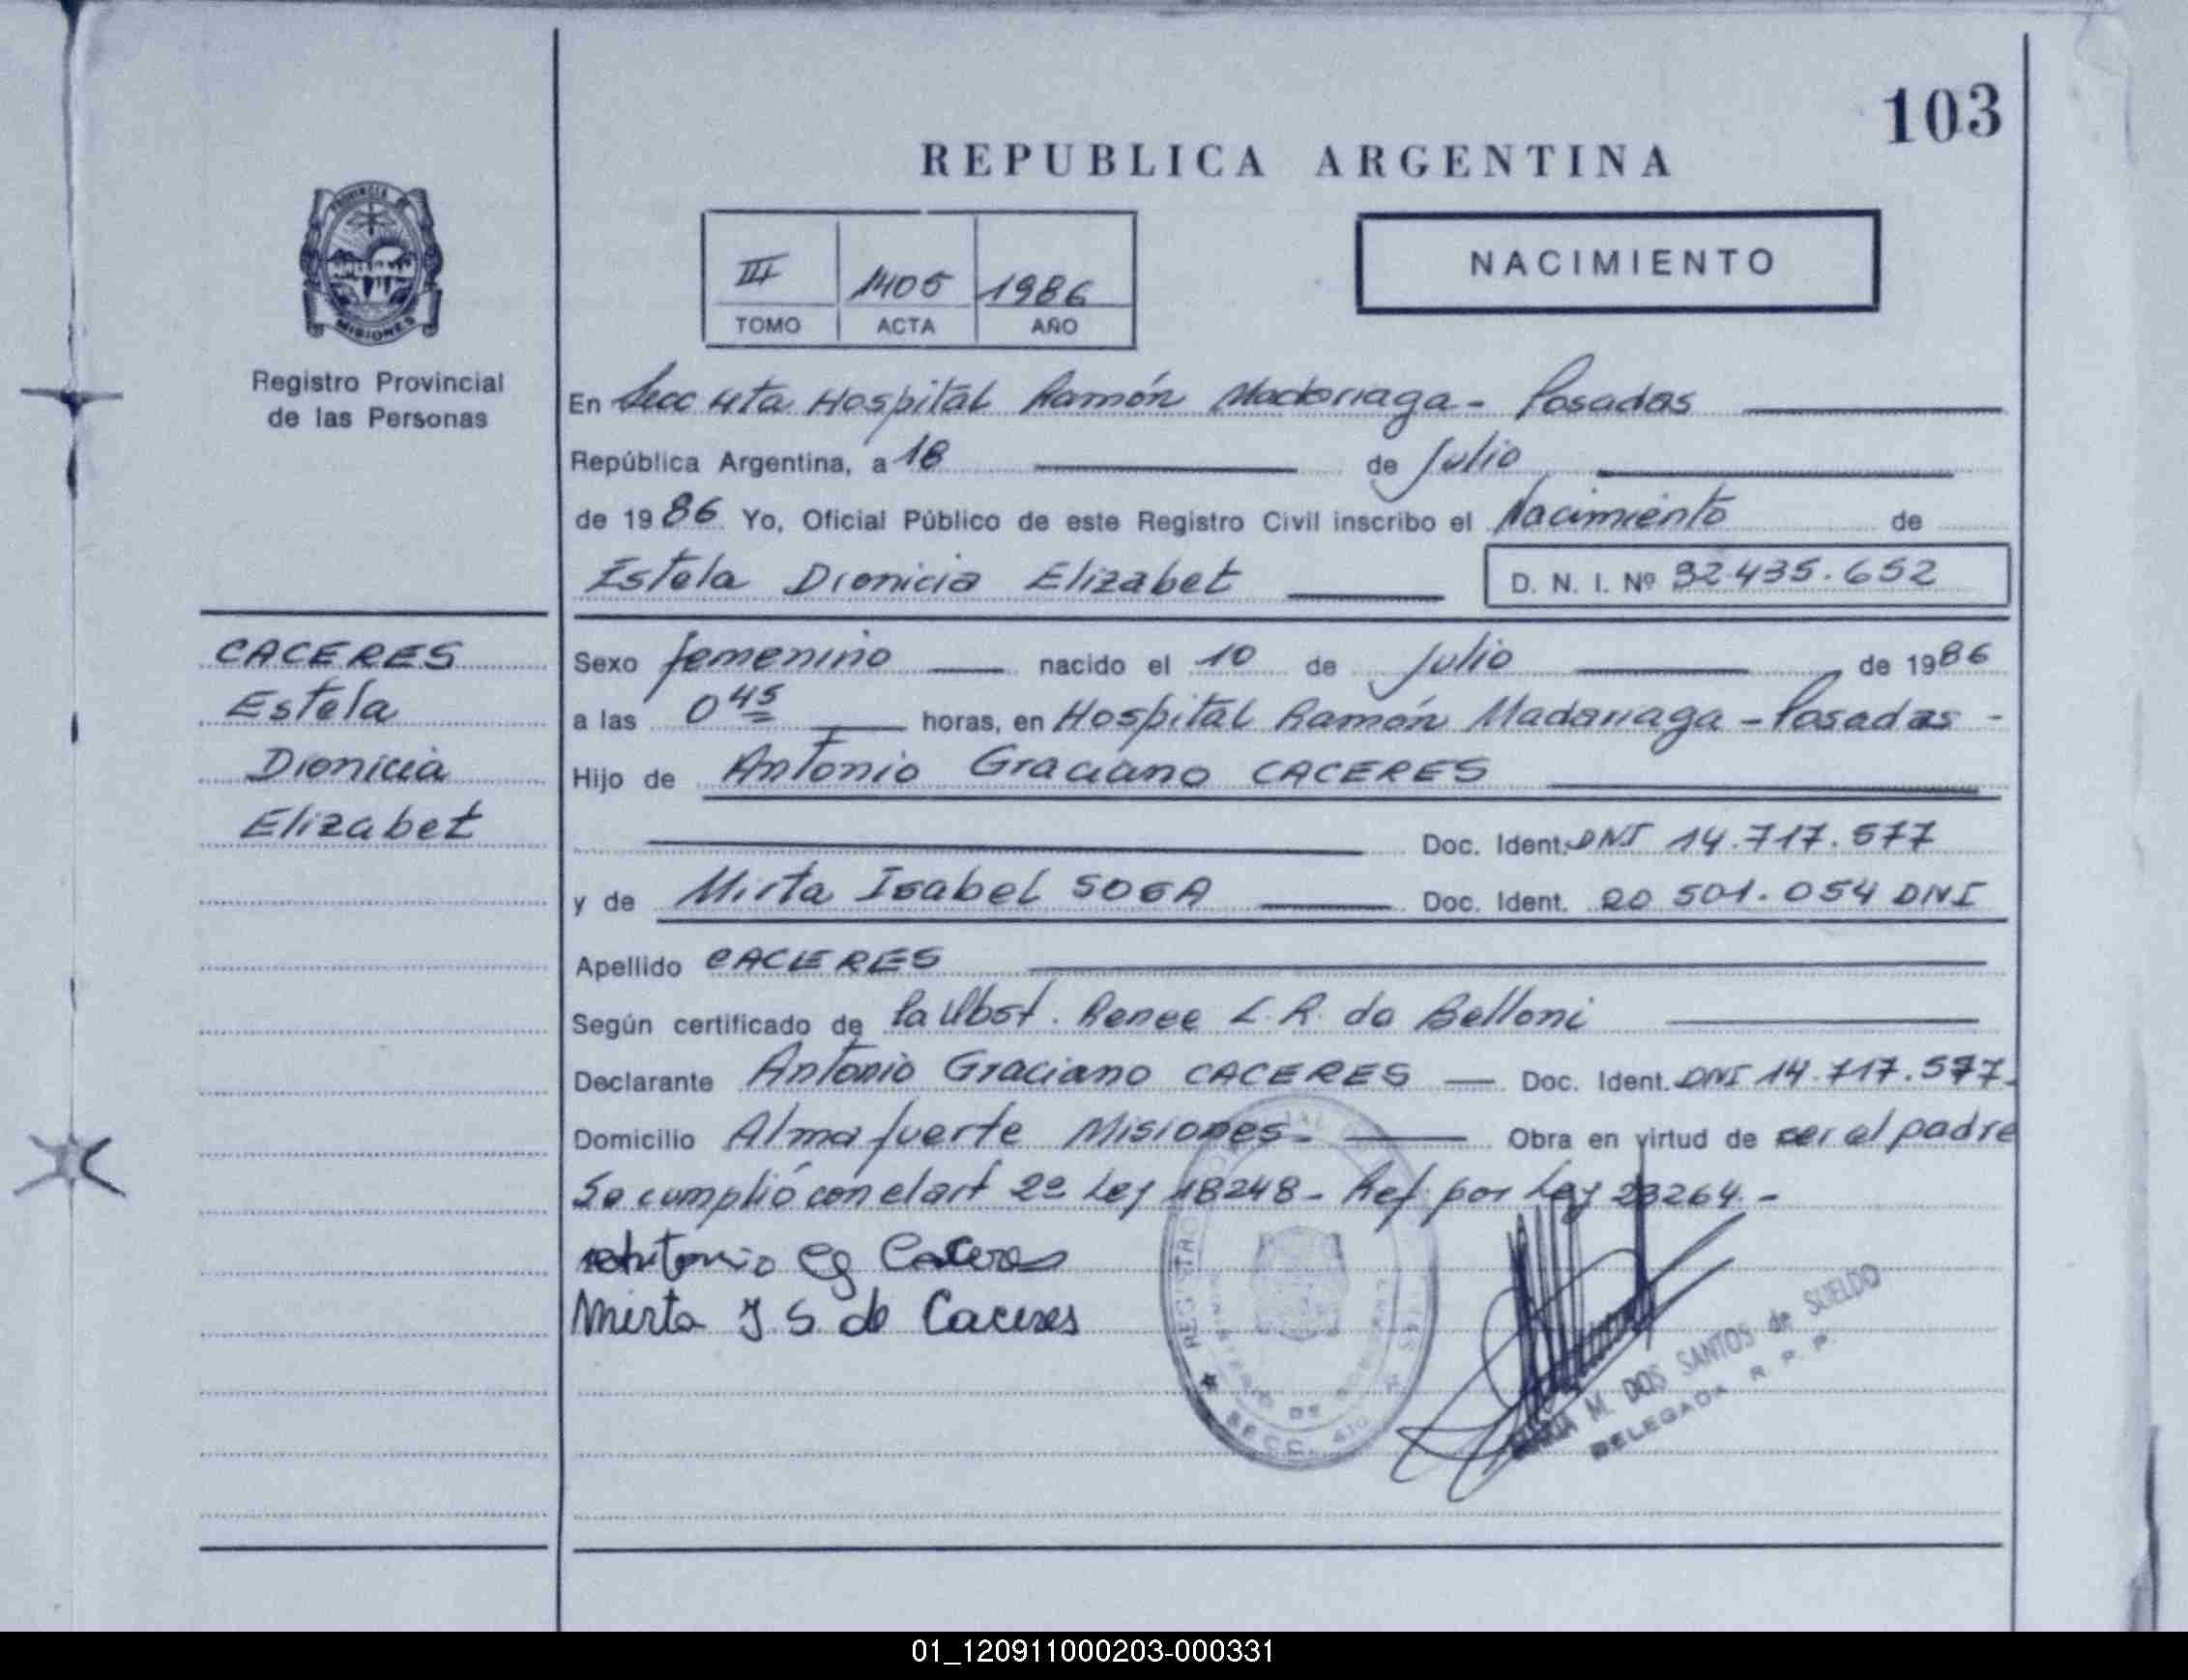 103
REPUBLICA ARGENTINA
PROVINCIA DE
MISIONES
Registro Provincial
de las Personas
III 1405 1986
TOMO ACTA AÑO
NACIMIENTO
En Secc 4ta Hospital Ramón Madariaga - Posadas
República Argentina, a 18 de Julio
de 1986 Yo, Oficial Público de este Registro Civil inscribo el Nacimiento de
Estela Dionicia Elizabet D. N. I. Nº 32.435.652
CACERES
Estela
Dionicia
Elizabet
Sexo femenino nacido el 10 de Julio de 1986
a las 0 45 horas, en Hospital Ramón Madariaga - Posadas -
Hijo de Antonio Graciano CACERES
Doc. Ident. DNI 14.717.577
y de Mirta Isabel SOSA Doc. Ident. 20 501.054 DNI
Apellido CACERES
Según certificado de la Obst. Renee L. R. de Belloni
Declarante Antonio Graciano CACERES — Doc. Ident. DNI 14.717.577.
Domicilio Almafuerte Misiones - Obra en virtud de ser el padre
Se cumplió con el art 2º Ley 18248 - Ref. por Ley 23264. -
Caceres
Mirta I S de Caceres
REGISTRO
MINISTERIO DE GOBIERNO
SECC. 4ta
M. DOS SANTOS de SUELDO
DELEGADA R. P. P.
01_120911000203-000331